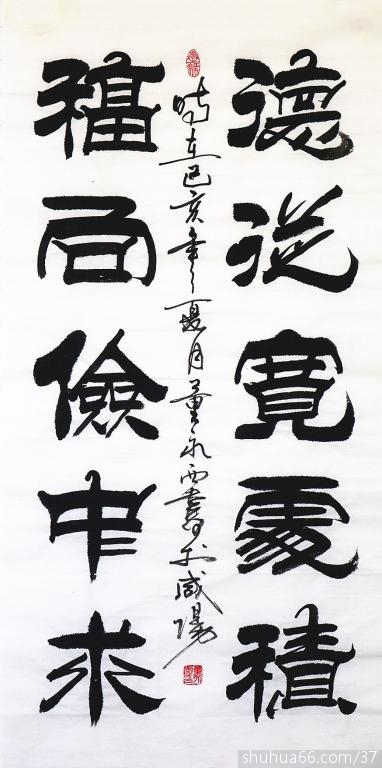 德從寬處積
福向儉中求
時在己亥年之夏月董永西書於咸陽
shuhua66.com/37